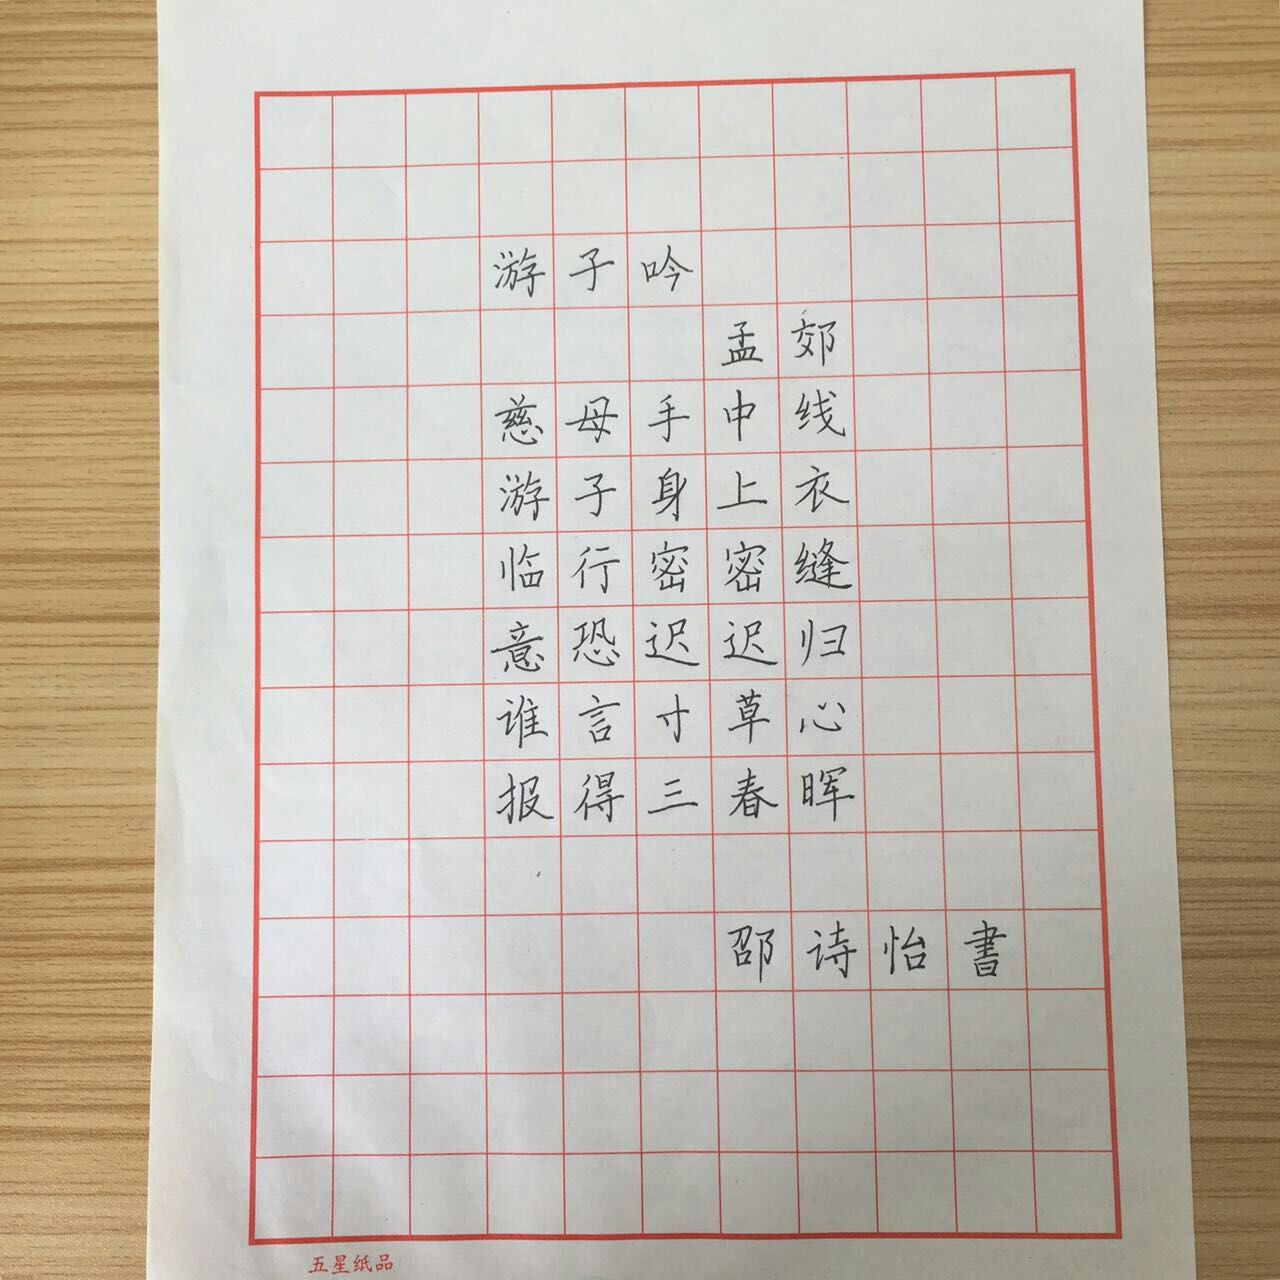 游子吟
孟郊
慈母手中线
游子身上衣
临行密密缝
意恐迟迟归
谁言寸草心
报得三春晖
邵诗怡書
五星纸品